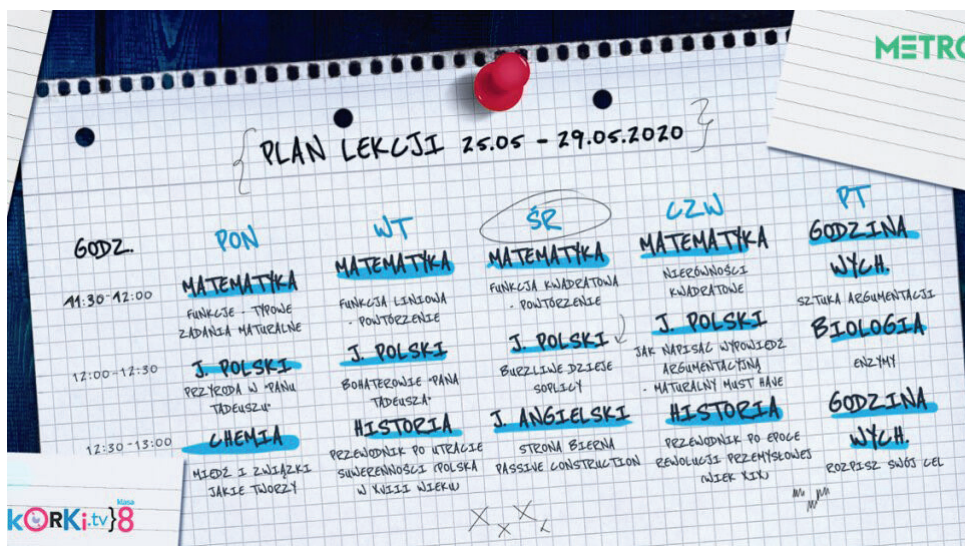 METRO
PLAN LEKCJI 25.05 - 29.05.2020
GODZ.
PON
WT
ŚR
CZW
PT
11:30-12:00
MATEMATYKA
FUNKCJE - TYPOWE
ZADANIA MATURALNE
MATEMATYKA
FUNKCJA LINIOWA
- POWTÓRZENIE
MATEMATYKA
FUNKCJA KWADRATOWA
- POWTÓRZENIE
MATEMATYKA
NIERÓWNOŚCI
KWADRATOWE
GODZINA
WYCH.
SZTUKA ARGUMENTACJI
12:00-12:30
J. POLSKI
PRZYRODA W "PANU
TADEUSZU"
J. POLSKI
BOHATEROWIE "PANA
TADEUSZA"
J. POLSKI
BURZLIWE DZIEJE
SOPLICY
J. POLSKI
JAK NAPISAĆ WYPOWIEDŹ
ARGUMENTACYJNĄ
- MATURALNY MUST HAVE
BIOLOGIA
ENZYMY
12:30-13:00
CHEMIA
MIEDŹ I ZWIĄZKI
JAKIE TWORZY
HISTORIA
PRZEWODNIK PO UTRACIE
SUWERENNOŚCI (POLSKA
W XVIII WIEKU)
J. ANGIELSKI
STRONA BIERNA
PASSIVE CONSTRUCTION
HISTORIA
PRZEWODNIK PO EPOCE
REWOLUCJI PRZEMYSŁOWEJ
(WIEK XIX)
GODZINA
WYCH.
ROZPISZ SWÓJ CEL
kORKi.tv}8
klasa